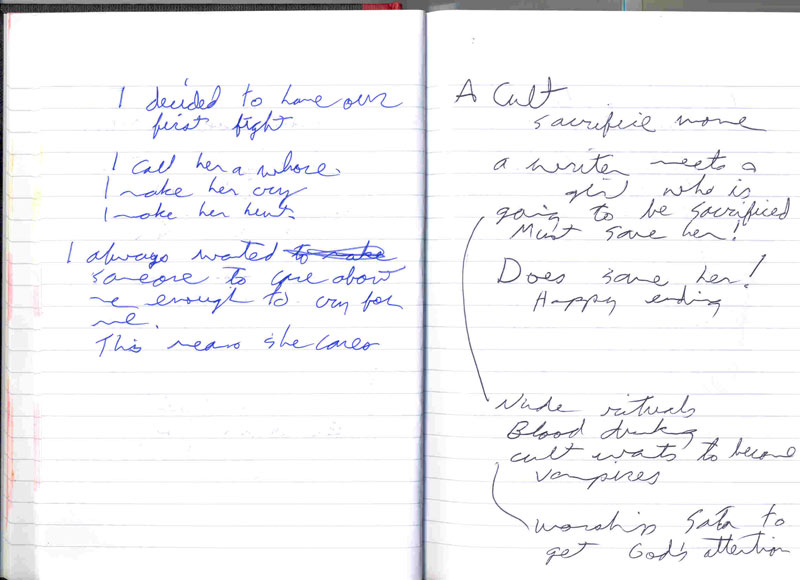 I decided to have our
first fight
I call her a whore.
I make her cry
I make her hurt.
I always wanted to make
someone to care about
me enough to cry for
me.
This means she cares
A Cult
sacrifice movie
a writer meets a
girl who is
going to be sacrificed
Must save her!
Does save her!
Happy ending
Nude rituals
Blood drinking
cult wants to become
vampires
worships Satan to
get God's attention